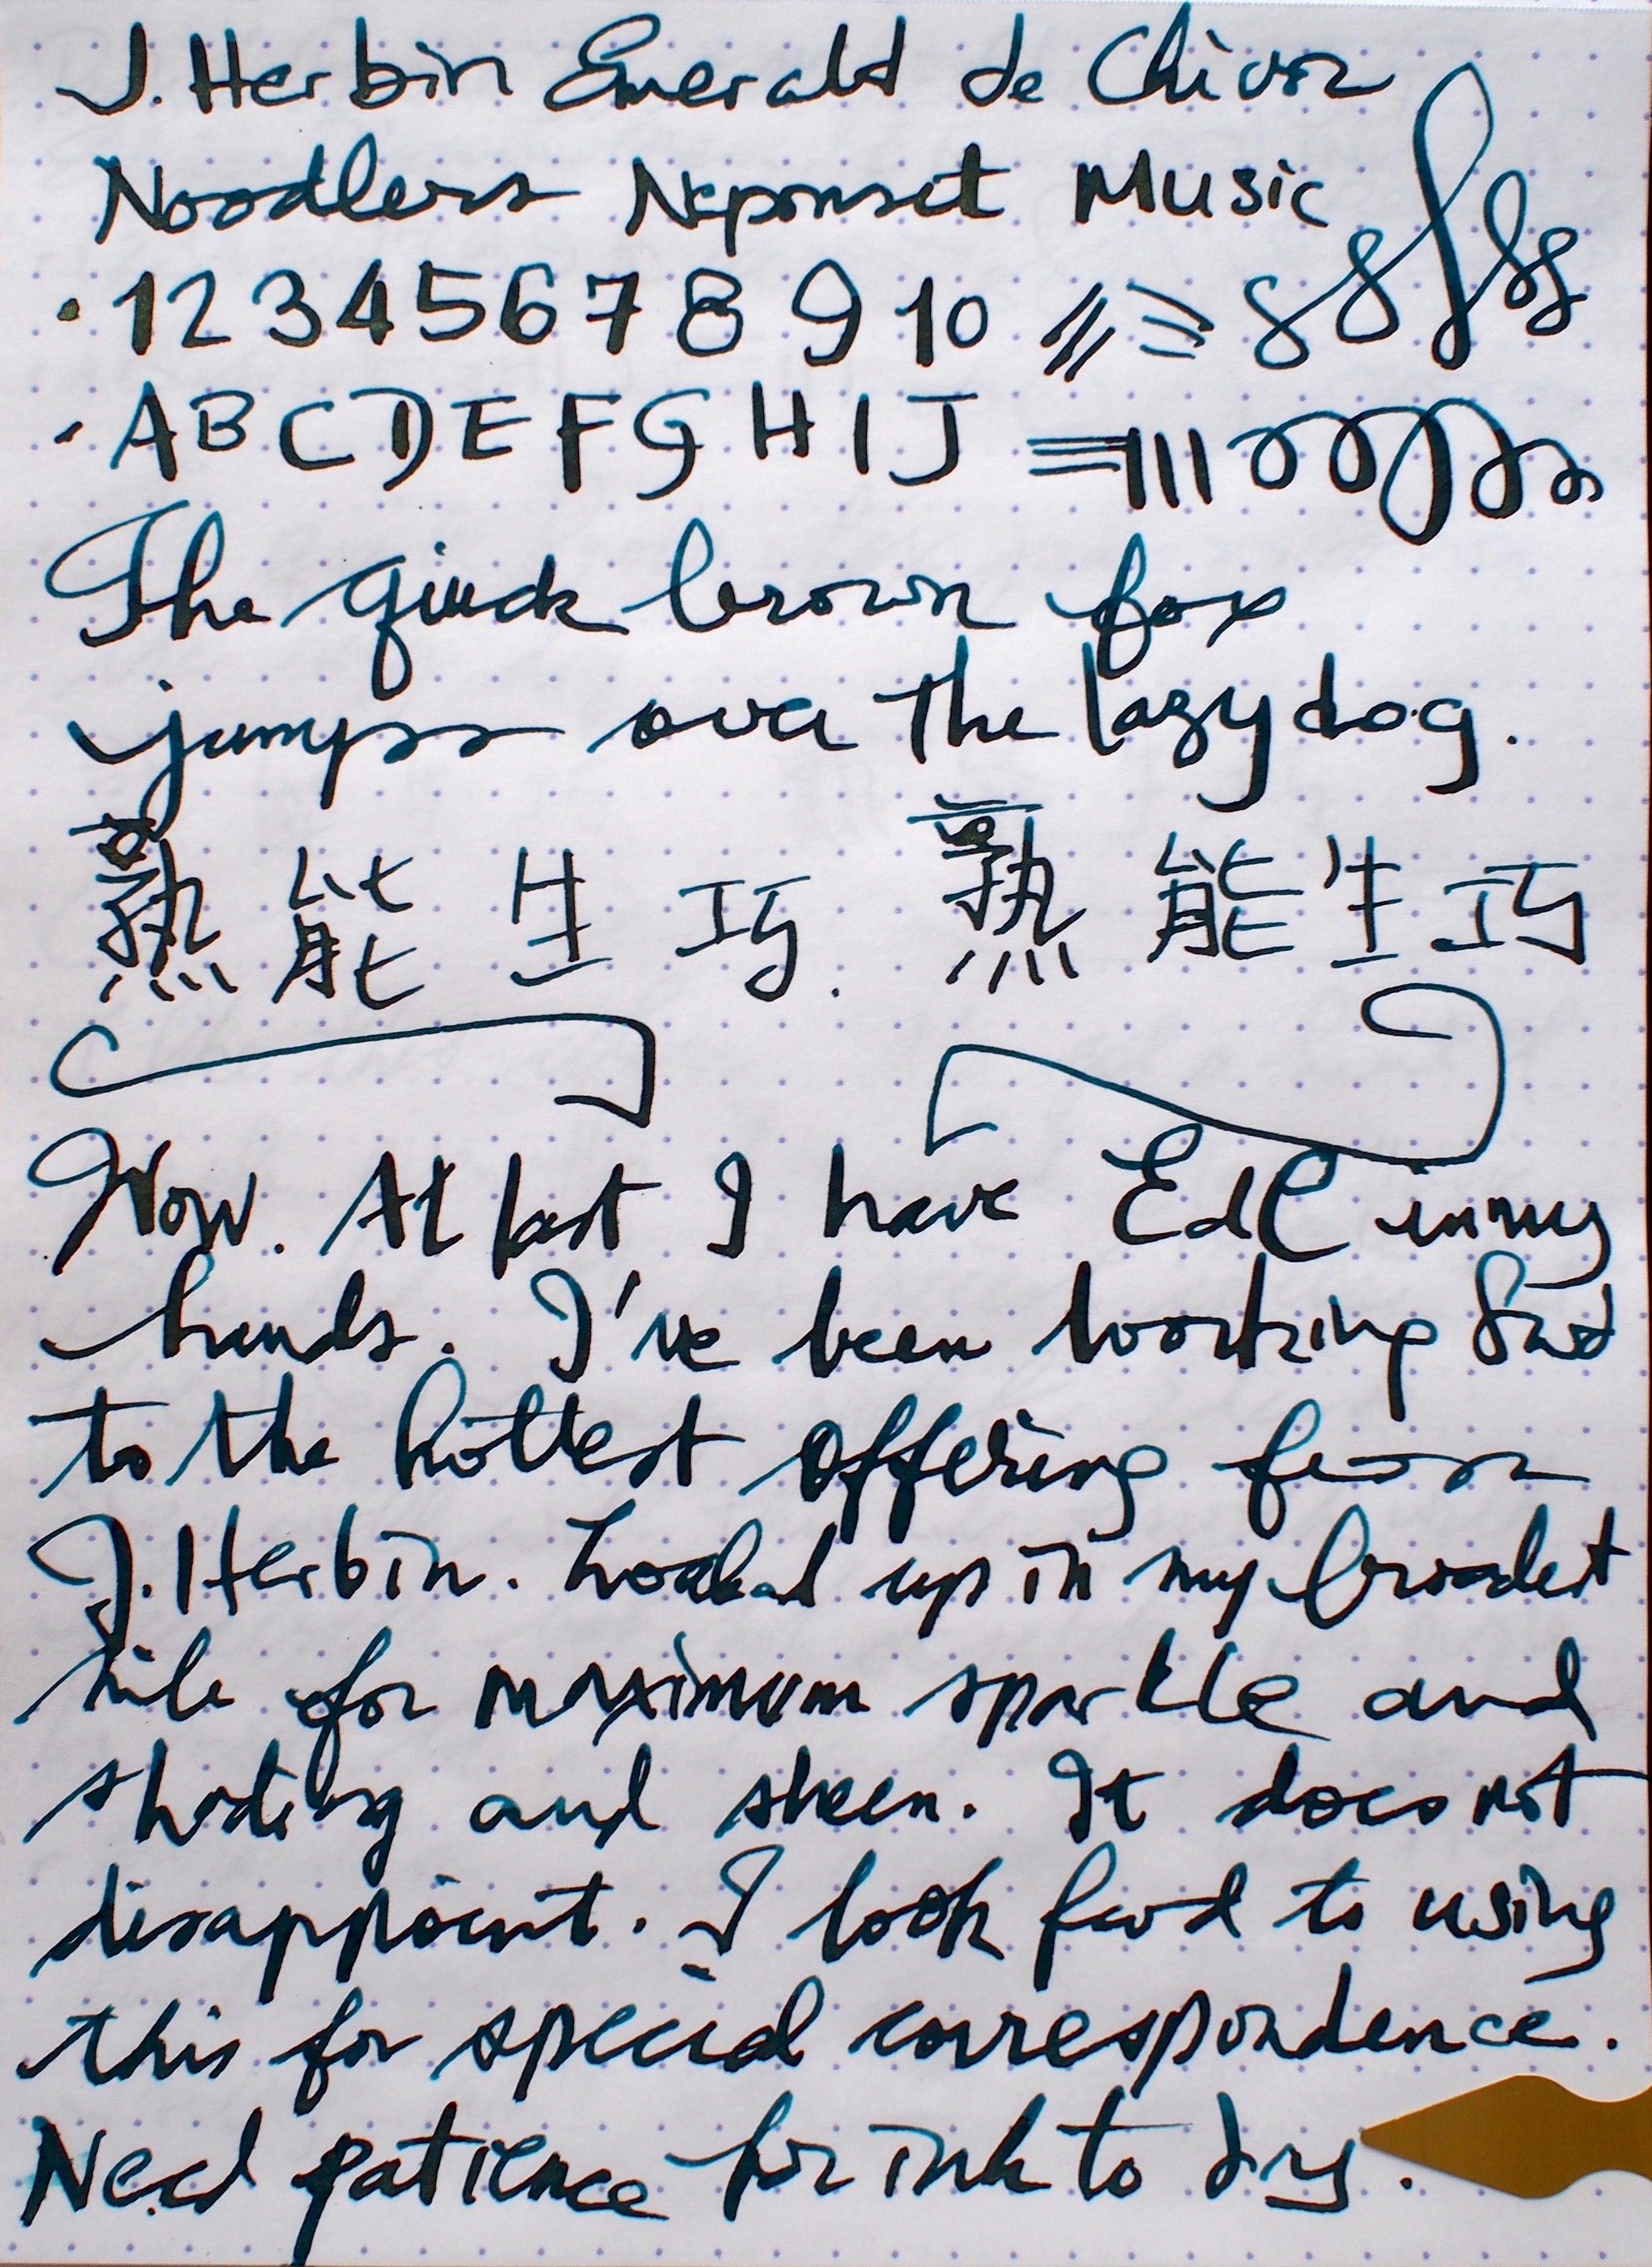 J. Herbin Emerald de Chivor
Noodlers Neponset Music
· 1 2 3 4 5 6 7 8 9 10
- A B C D E F G H I J
The quick brown fox
jumps over the lazy dog.
熟能生巧. 熟能生巧
Wow. At last I have EdC in my
hands. I've been looking fwd
to the hottest offering from
J. Herbin. Loaded up in my broadest
nib for maximum sparkle and
shading and sheen. It does not
disappoint. I look fwd to using
this for special correspondence.
Need patience for ink to dry.